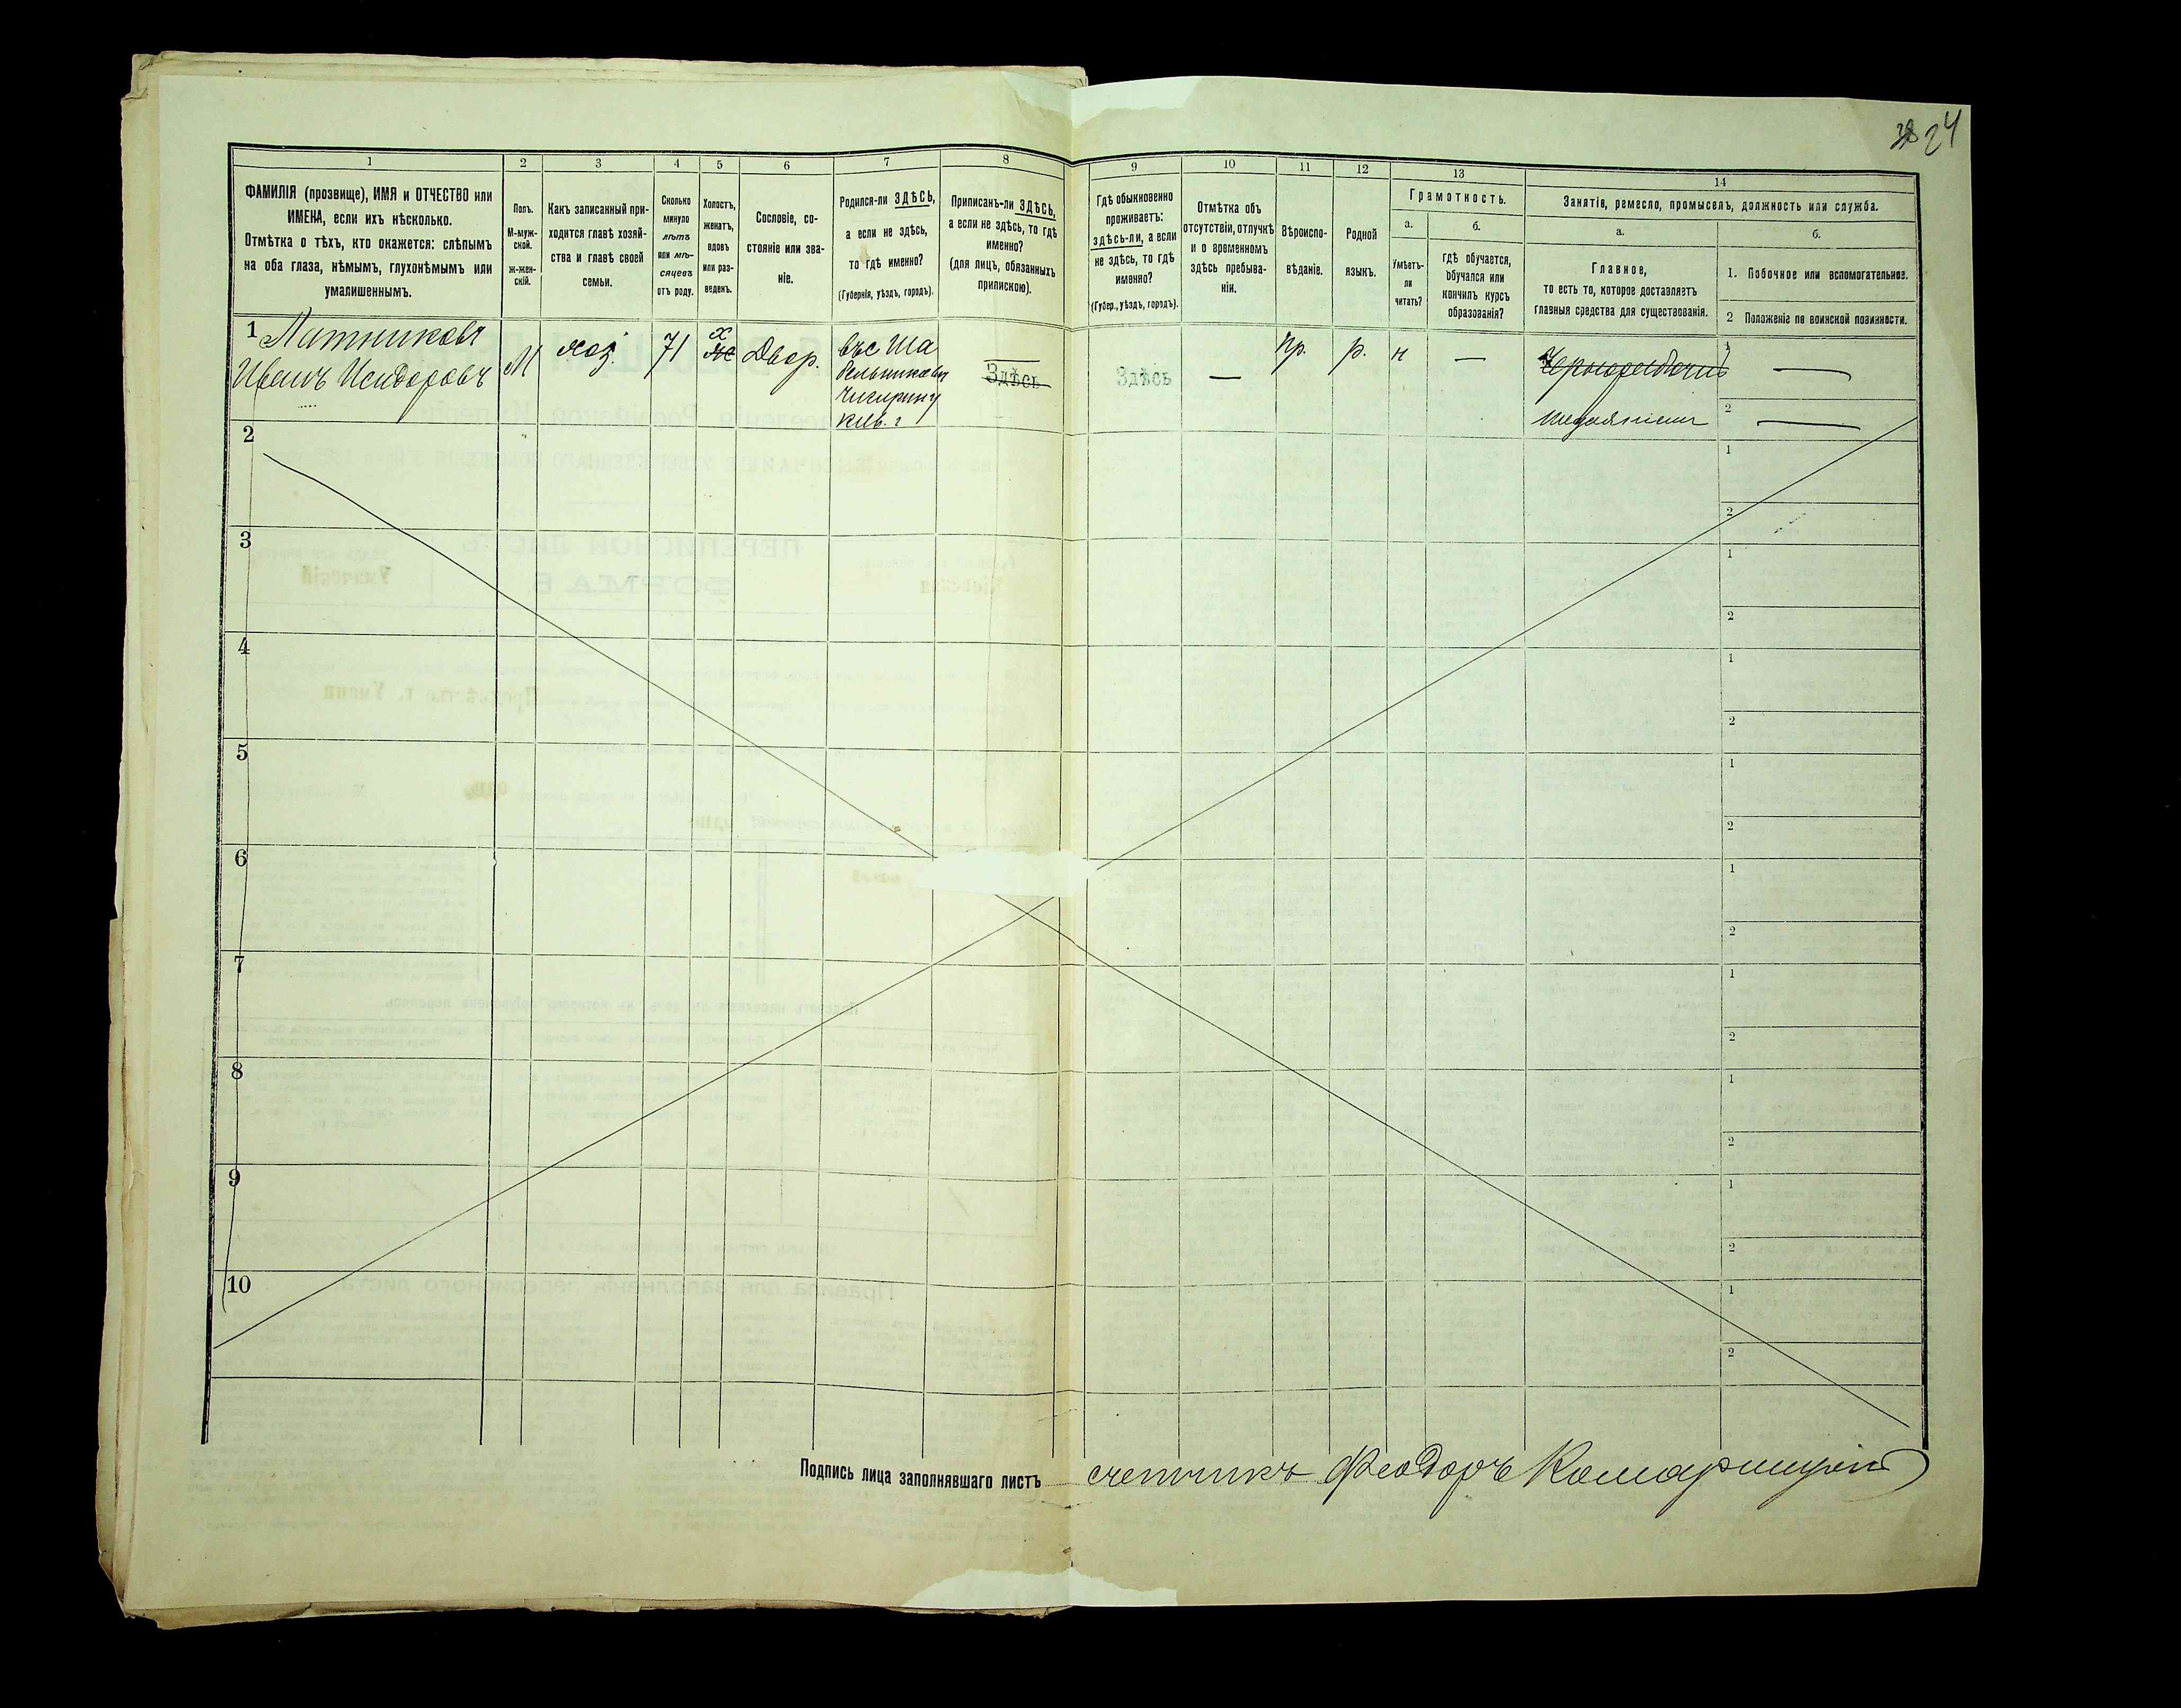 24
1 2 3 4 5 6 7 8 9 10 11 12 13 14
ФАМИЛІЯ (прозвище), ИМЯ и ОТЧЕСТВО или
ИМЕНА, если ихъ нѣсколько.
Отмѣтка о тѣхъ, кто окажется: слѣпымъ
на оба глаза, нѣмымъ, глухонѣмымъ или
умалишеннымъ.
Полъ.
М-муж-
ской.
ж-жен-
скій.
Какъ записанный при-
ходится главѣ хозяй-
ства и главѣ своей
семьи.
Сколько
минуло
лѣтъ
или мѣ-
сяцевъ
отъ роду.
Холостъ,
женатъ,
вдовъ
или раз-
веденъ.
Сословіе, со-
стояніе или зва-
ніе.
Родился-ли ЗДѢСЬ,
а если не здѣсь,
то гдѣ именно?
(Губернія, уѣздъ, городъ).
Приписанъ-ли ЗДѢСЬ,
а если не здѣсь, то гдѣ
именно?
(для лицъ, обязанныхъ
припискою).
Гдѣ обыкновенно
проживаетъ:
здѣсь-ли, а если
не здѣсь, то гдѣ
именно?
(Губер., уѣздъ, городъ).
Отмѣтка объ
отсутствіи, отлучкѣ
и о временномъ
здѣсь пребыва-
ніи.
Вѣроиспо-
вѣданіе.
Родной
языкъ.
Грамотность.
а.
Умѣетъ-
ли
читать?
б.
гдѣ обучается,
обучался или
кончилъ курсъ
образованія?
Занятія, ремесло, промыселъ, должность или служба.
а.
Главное,
то есть то, которое доставляетъ
главныя средства для существованія.
б.
1. Побочное или вспомогательное.
2 Положеніе по воинской повинности.
1
Иванъ Исидоровъ
М
хоз.
71
х
Двор.
Чигирин у
Кіев. г
Здѣсь
Здѣсь
—
пр.
р.
н
—
Чернорабочій
1 —
2 —
2
1
2
3
1
2
4
1
2
5
1
2
6
1
2
7
1
2
8
1
2
9
1
2
10
1
2
Подпись лица заполнявшаго листъ счетчикъ Феодоръ